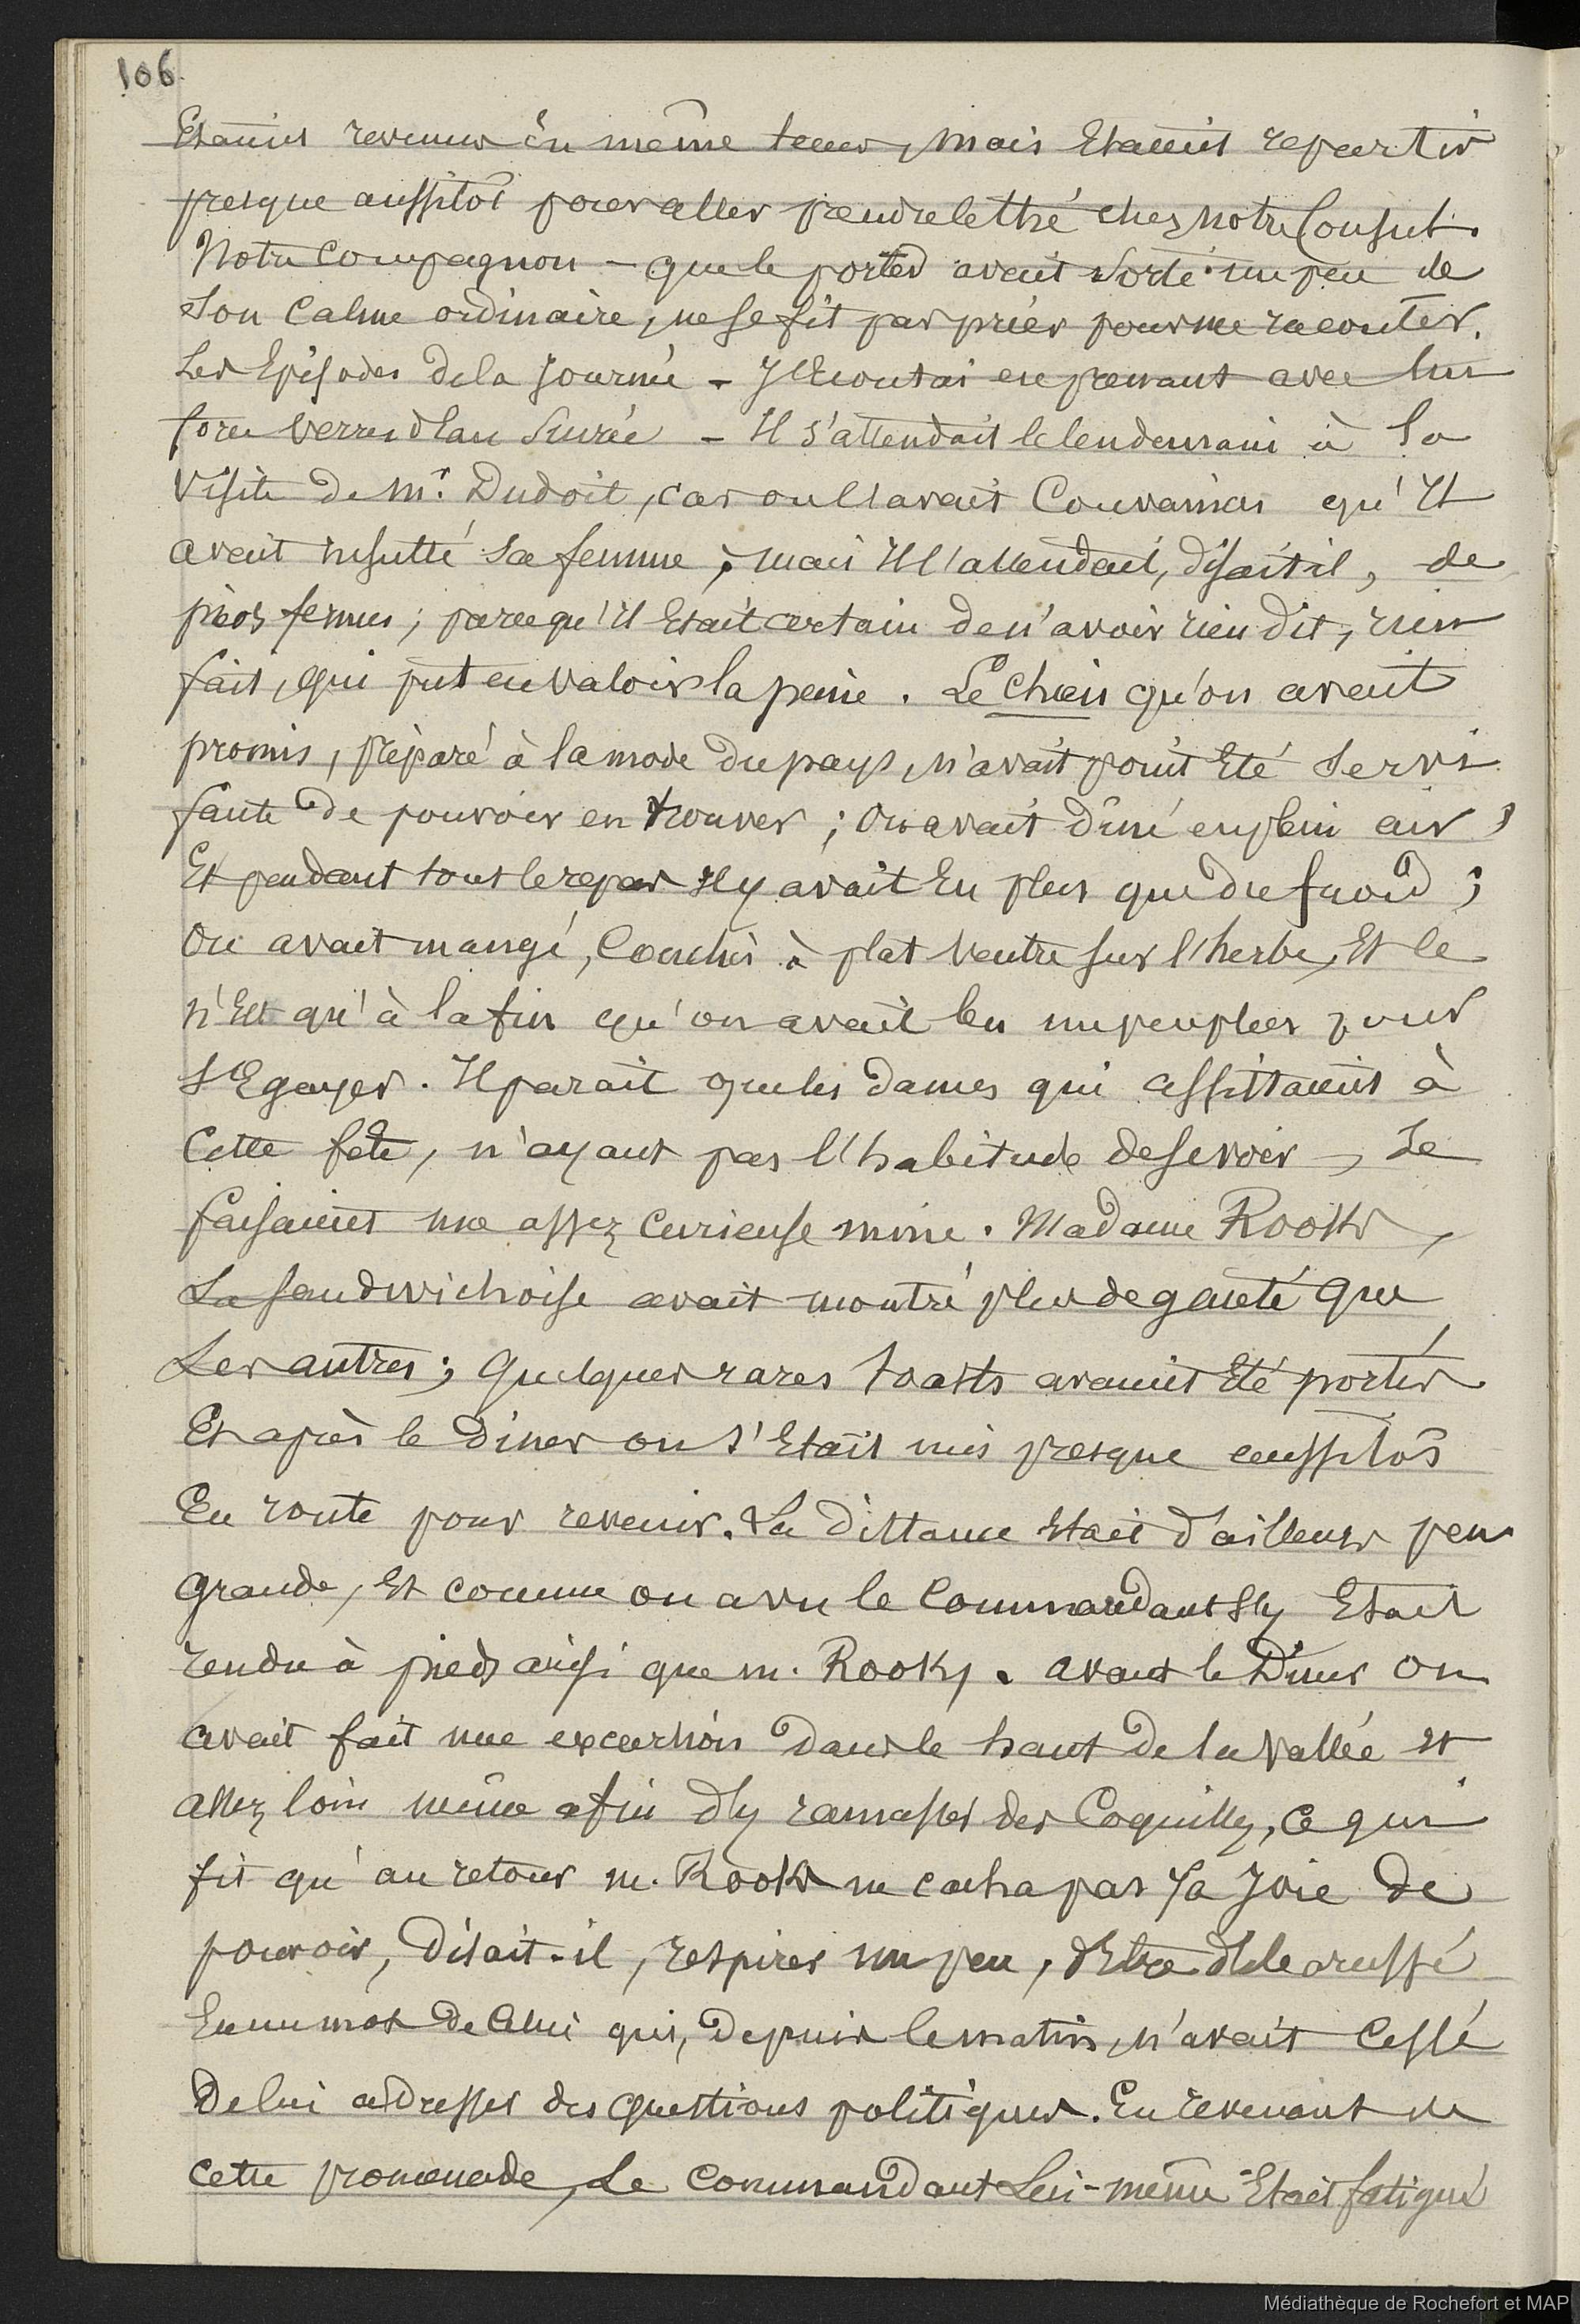 106.
Etaient revenus en même temps, mais Etaient repartis
presque aussitôt pour aller prendre le thé chez notre Consul.
Notre compagnon — que le porter avait sorti un peu de
son calme ordinaire, ne se fit pas prier pour me raconter
Les Episodes de la journée — J'Ecoutai en prenant avec lui
force verres d'eau sucrée — Il s'attendait le lendemain à la
visite de Mr. Dudoit, car on l'avait Convaincu qu'Il
avait insulté sa femme ; mais Il l'attendait, disait il, de
pieds fermes ; parcequ'il Etait certain de n'avoir rien dit, rien
fait, qui put en valoir la peine. Le chien qu'on avait
promis, préparé à la mode du pays, n'avait point Eté servi
faute de pouvoir en trouver ; On avait dîné en plein air,
Et pendant tout le repas Il y avait Eu plus que du froid ;
On avait mangé, Couchés à plat ventre sur l'herbe, Et ce
n'Est qu'à la fin qu'on avait bu un peu plus pour
s'Egayer. Il parait que les dames qui assistaient à
Cette fête, n'ayant pas l'habitude de se voir, se
faisaient une assez curieuse mine. Madame Rooks,
La sandwichoise avait montré plus de gaieté que
Les autres ; quelques rares toasts avaient Eté portés
Et après le dîner on s'Etait mis presque aussitôt
En route pour revenir. La distance Etait d'ailleurs peu
grande, Et comme on a vu le Commandant s'y Etait
rendu à pieds ainsi que m. Rooks. avant le Dîner on
avait fait une excursion dans le haut de la vallée et
assez loin même afin d'y ramasser des Coquilles, ce qui
fit qu'au retour m. Rooks ne cacha pas sa Joie de
pouvoir, disait-il, respirer un peu, d'Etre débarassé
En un mot de Celui qui, Depuis le matin, n'avait cessé
De lui adresser des questions politiques. En revenant de
cette promenade, Le Commandant Lui-même Etait fatigué
Médiathèque de Rochefort et MAP